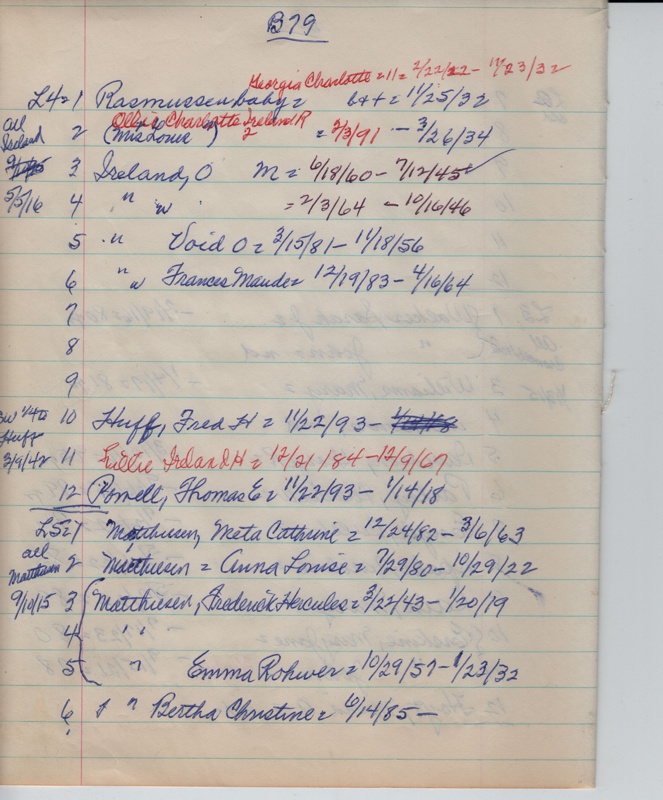 B79
Georgia Charlotte = 11 = 2/22/22 - 12/23/32
L4 = 1 Rasmussen baby = b + = 11/25/32
Ollie Charlotte Ireland R
all Ireland 2 (Mrs Louie ") 2 = 2/3/91 - 3/26/34
3 Ireland, O M = 6/18/60 - 7/12/45
5/5/16 4 " " = 2/3/64 - 10/16/46
5 " Void O = 3/15/81 - 11/18/56
6 " " Frances Maude = 12/19/83 - 4/16/64
7
8
9
1/4 10 Huff, Fred H = 11/22/93 -
Huff
3/9/42 11 Lillie Ireland H = 12/21/84 - 12/9/67
12 Powell, Thomas E = 11/22/93 - 1/14/18
L5 = 1 Matthiesen, Meta Cathrine = 12/24/82 - 3/6/63
all Matthiesen 2 Matthiesen = Anna Louise = 7/29/80 - 10/29/22
9/10/15 3 Matthiesen, Frederick Hercules = 3/22/43 - 1/20/19
4 " "
5 " Emma Rohwer = 10/29/57 - 1/23/32
6 " Bertha Christine = 6/14/85 -